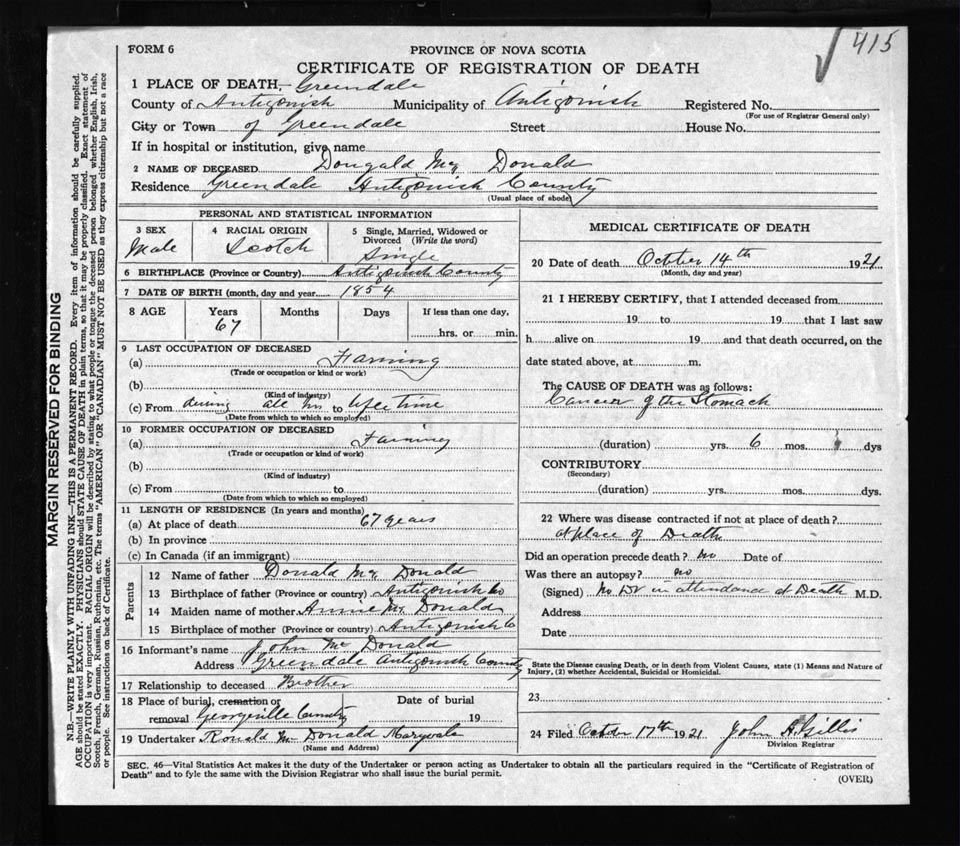 415
FORM 6
PROVINCE OF NOVA SCOTIA
CERTIFICATE OF REGISTRATION OF DEATH
1 PLACE OF DEATH,— Greendale
County of Antigonish Municipality of Antigonish Registered No.
(For use of Registrar General only)
City or Town of Greendale Street House No.
If in hospital or institution, give name
2 NAME OF DECEASED Dougald Mc Donald
Residence Greendale Antigonish County
(Usual place of abode)
PERSONAL AND STATISTICAL INFORMATION
3 SEX 4 RACIAL ORIGIN 5 Single, Married, Widowed or
Divorced (Write the word)
Male Scotch Single
6 BIRTHPLACE (Province or Country) Antigonish County
7 DATE OF BIRTH (month, day and year 1854
8 AGE Years Months Days If less than one day,
67 hrs. or min.
9 LAST OCCUPATION OF DECEASED
(a) Farming
(Trade or occupation or kind of work)
(b)
(Kind of industry)
(c) From during all his to life time
(Date from which to which so employed)
10 FORMER OCCUPATION OF DECEASED
(a) Farming
(Trade or occupation or kind of work)
(b)
(Kind of industry)
(c) From to
(Date from which to which so employed)
11 LENGTH OF RESIDENCE (In years and months)
(a) At place of death 67 years
(b) In province
(c) In Canada (if an immigrant)
Parents
12 Name of father Donald Mc Donald
13 Birthplace of father (Province or country) Antigonish Co
14 Maiden name of mother Annie Mc Donald
15 Birthplace of mother (Province or country) Antigonish C
16 Informant's name John Mc Donald
Address Greendale Antigonish County
17 Relationship to deceased Brother
18 Place of burial, cremation or Date of burial
removal Georgeville Cemetry 19
19 Undertaker Ronald Mc Donald Maryvale
(Name and Address)
MEDICAL CERTIFICATE OF DEATH
20 Date of death October 14th 1921
(Month, day and year)
21 I HEREBY CERTIFY, that I attended deceased from
19 to 19 that I last saw
h alive on 19 and that death occurred, on the
date stated above, at m.
The CAUSE OF DEATH was as follows:
Cancer of the Stomach
(duration) yrs. 6 mos. dys
CONTRIBUTORY
(Secondary)
(duration) yrs. mos. dys.
22 Where was disease contracted if not at place of death?
at place of Death
Did an operation precede death? no Date of
Was there an autopsy? no
(Signed) No Dr in attendance at Death M.D.
Address
Date
State the Disease causing Death, or in death from Violent Causes, state (1) Means and Nature of
Injury, (2) whether Accidental, Suicidal or Homicidal.
23
24 Filed October 17th 1921 John A Gillis
Division Registrar
SEC. 46—Vital Statistics Act makes it the duty of the Undertaker or person acting as Undertaker to obtain all the particulars required in the "Certificate of Registration of
Death" and to fyle the same with the Division Registrar who shall issue the burial permit.
(OVER)
MARGIN RESERVED FOR BINDING
N.B.—WRITE PLAINLY WITH UNFADING INK—THIS IS A PERMANENT RECORD. Every item of information should be carefully supplied.
AGE should be stated EXACTLY. PHYSICIANS should STATE CAUSE OF DEATH in plain terms, so that it may be properly classified. Exact statement of
OCCUPATION is very important. RACIAL ORIGIN will be described by stating to what people or tongue the deceased person belonged whether English, Irish,
Scotch, French, German, Russian, Ruthenian, etc. The terms "AMERICAN" OR "CANADIAN" MUST NOT BE USED as they express citizenship but not a race
or people. See instructions on back of Certificate.